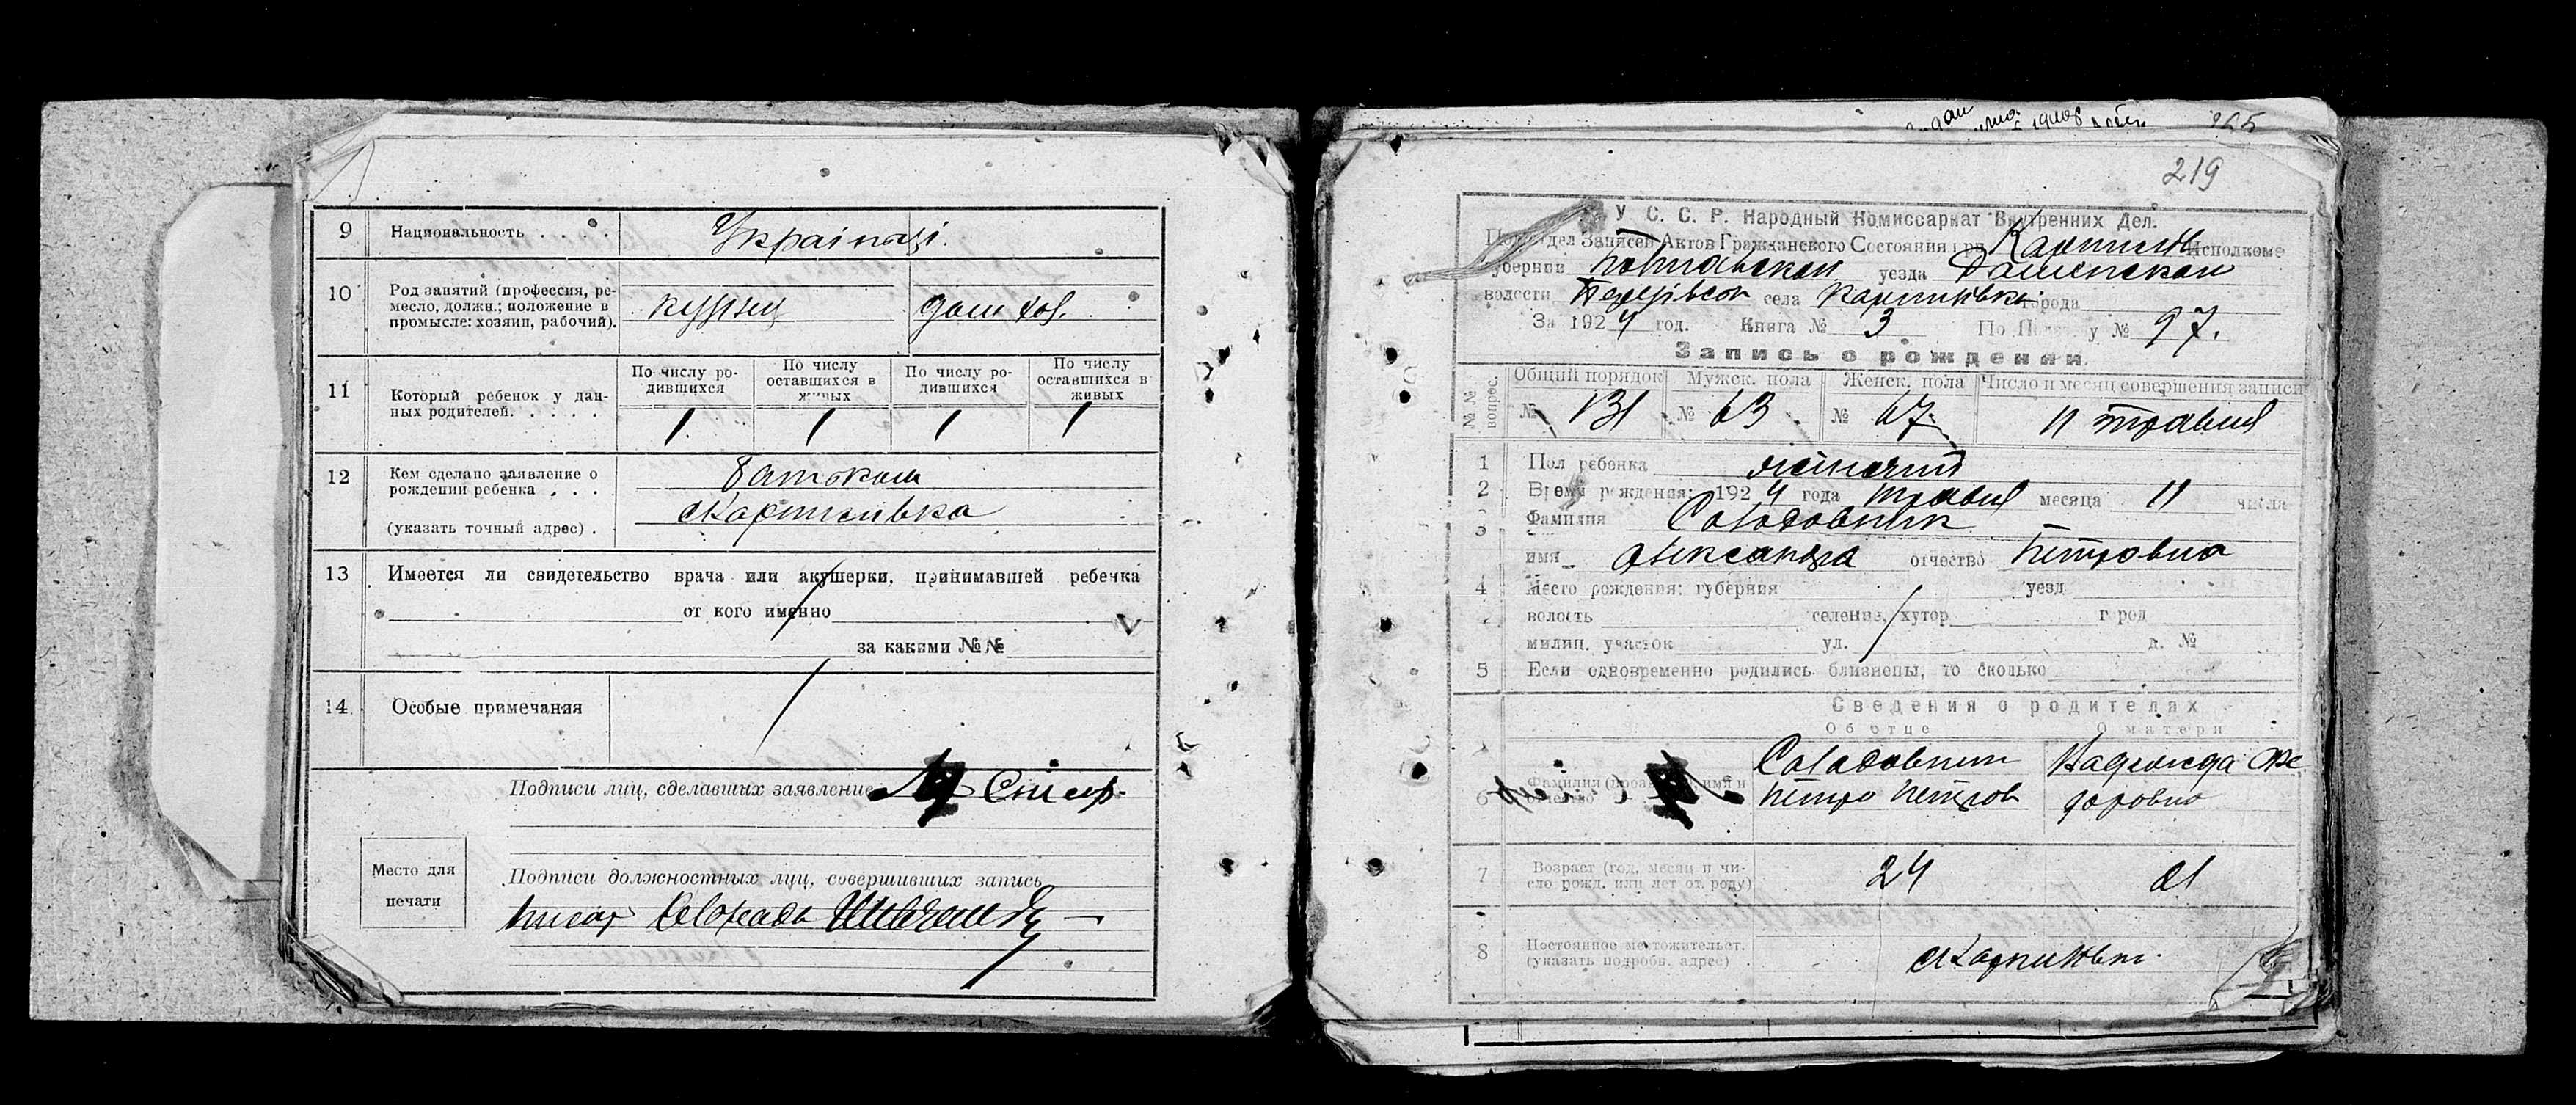 9 Национальность . . . . Українці.
10 Род занятий (профессия, ре-
месло, должн.; положение в
промысле: хозяин, рабочий).
11 Который ребенок у дан-
ных родителей. . . . . .
По числу ро-
дившихся
По числу
оставшихся в
живых
По числу ро-
дившихся
По числу
оставшихся в
живых
1 1 1 1
12 Кем сделано заявление о
рождении ребенка . . . батьком
(указать точный адрес) .
13 Имеется ли свидетельство врача или акушерки, принимавшей ребенка
от кого именно
за какими №№
14 Особые примечания
Подписи лиц, сделавших заявление
Место для
печати
Подписи должностных лиц, совершивших запись
219
У С. С. Р. Народный Комиссариат Внутренних Дел.
Подотдел Записей Актов Гражданского Состояния при Исполкоме
Губернии Полтавской уезда
волости села города
За 1924 год. Книга № 3 По № 97.
Запись о рождении.
№№ вопрос.
Общий порядок Мужск. пола Женск. пола Число и месяц совершения записи
№ 131 № 63 № 67. 11 травня
1 Пол ребенка жіночий
2 Время рождения: 1924 года травня месяца 11 числа
3 Фамилия Солодовник
имя Олександра отчество Петровна
4 Место рождения: губерния уезд
волость селение, хутор город
милиц. участок ул. д. №
5 Если одновременно родились близнецы, то сколько
Сведения о родителях
Об отце О матери
6 Фамилия (прозвание), имя и
отчество
Солодовник
Петро Петров
Надежда Фе
доровна
7 Возраст (год, месяц и чи-
сло рожд. или лет от роду)
24 21
8 Постоянное местожительст.
(указать подробн. адрес)